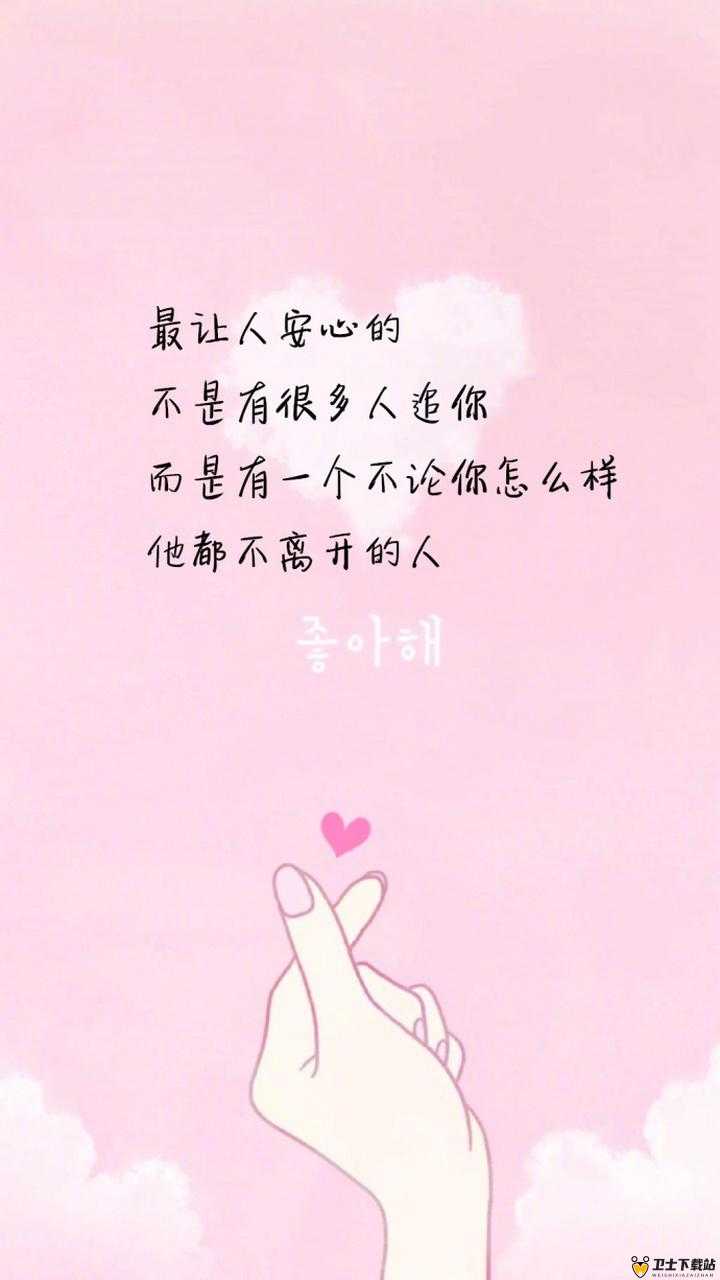 最让人安心的
不是有很多人追你
而是有一个不论你怎么样
他都不离开的人
좋아해
卫士下载站
WEISHIXIAZAIZHAN